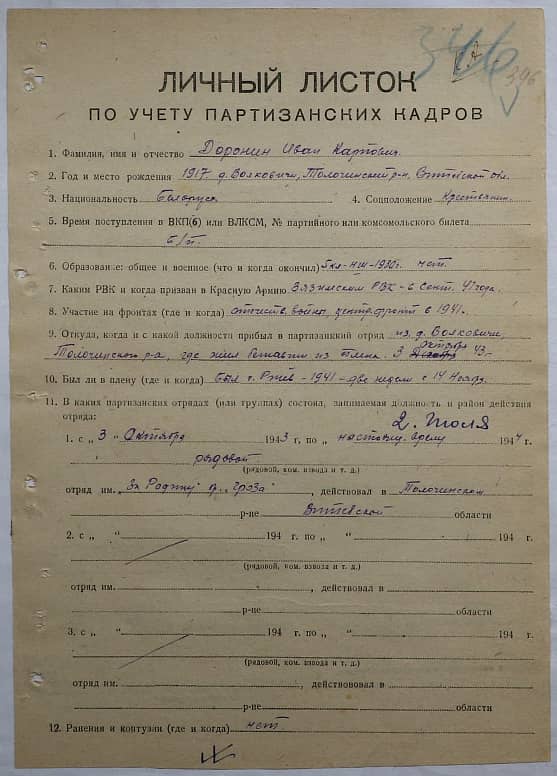 396
ЛИЧНЫЙ ЛИСТОК
ПО УЧЕТУ ПАРТИЗАНСКИХ КАДРОВ
1. Фамилия, имя и отчество Доронин Иван Карпович.
2. Год и место рождения 1917 д. Волковичи, Толочинский р-н, Витебской обл.
3. Национальность Белорус 4. Соцположение Крестьянин.
5. Время поступления в ВКП(б) или ВЛКСМ, № партийного или комсомольского билета
б/п.
6. Образование: общее и военное (что и когда окончил) 5 кл-НСШ-1930г. нет.
7. Каким РВК и когда призван в Красную Армию Вяземским РВК-в сент. 41 года.
8. Участие на фронтах (где и когда) отечеств. война, центр. фронт в 1941.
9. Откуда, когда и с какой должности прибыл в партизанский отряд из д. Волковичи,
Толочинского р-а, где жил бежавши из плена. 3 октября 43.
10. Был ли в плену (где и когда) был г. Ржев-1941-две недели с 14 ноября.
11. В каких партизанских отрядах (или группах) состоял, занимаемая должность и район действия
отряда:
2. Июля
1. с „ 3 “ Октября 1943 г. по „ настоящ. время 1944 г.
рядовой
(рядовой, ком. взвода и т. д.)
отряд им. „За Родину“ бр. „Гроза“, действовал в Толочинском
р-не Витебской области
2. с „ “ 194 г. по „ “ 194 г.
(рядовой, ком. взвода и т. д.)
отряд им. , действовал в
р-не области
3. с „ “ 194 г. по „ “ 194 г.
(рядовой, ком. взвода и т. д.)
отряд им. , действовал в
р-не области
12. Ранения и контузии (где и когда) нет.